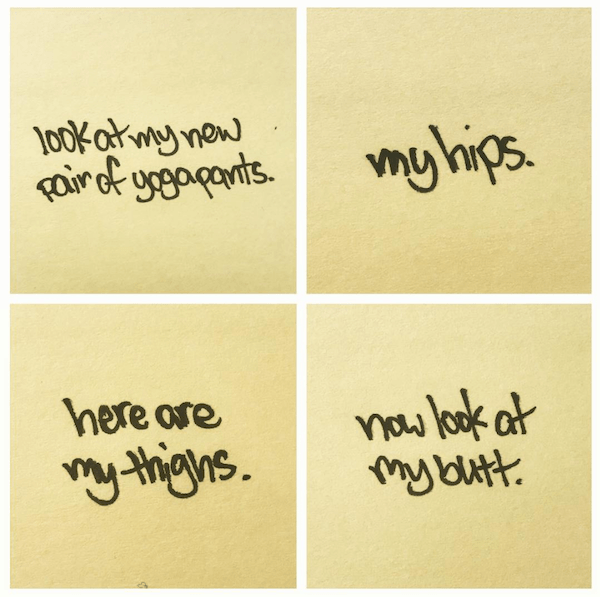 look at my new
pair of yogapants.
my hips.
here are
my thighs.
now look at
my butt.